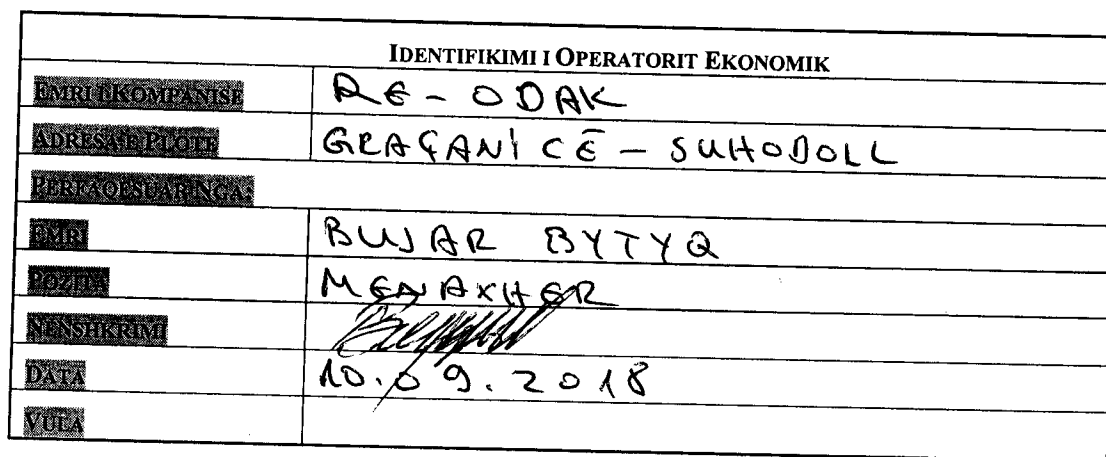 IDENTIFIKIMI I OPERATORIT EKONOMIK
EMRI I KOMPANISË RE - ODAK
ADRESA E PLOTË GRAÇANICË - SUHODOLL
PËRFAQËSUAR NGA:
EMRI BUJAR BYTYQ
POZITA MENAXHER
NËNSHKRIMI
DATA 10.09.2018
VULA